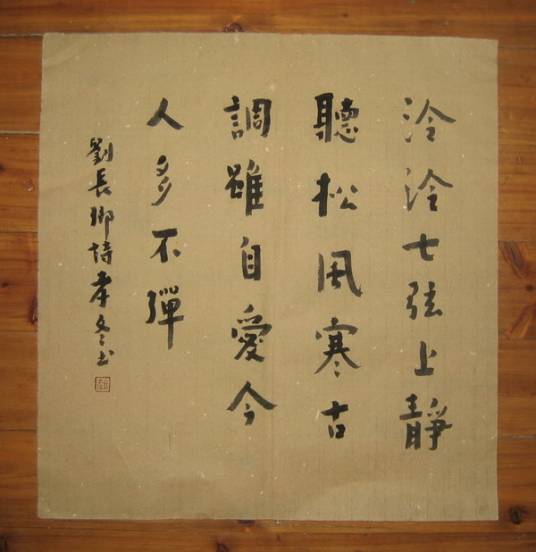 泠泠七弦上靜
聽松風寒古
調雖自愛今
人多不彈
劉長卿詩冬书